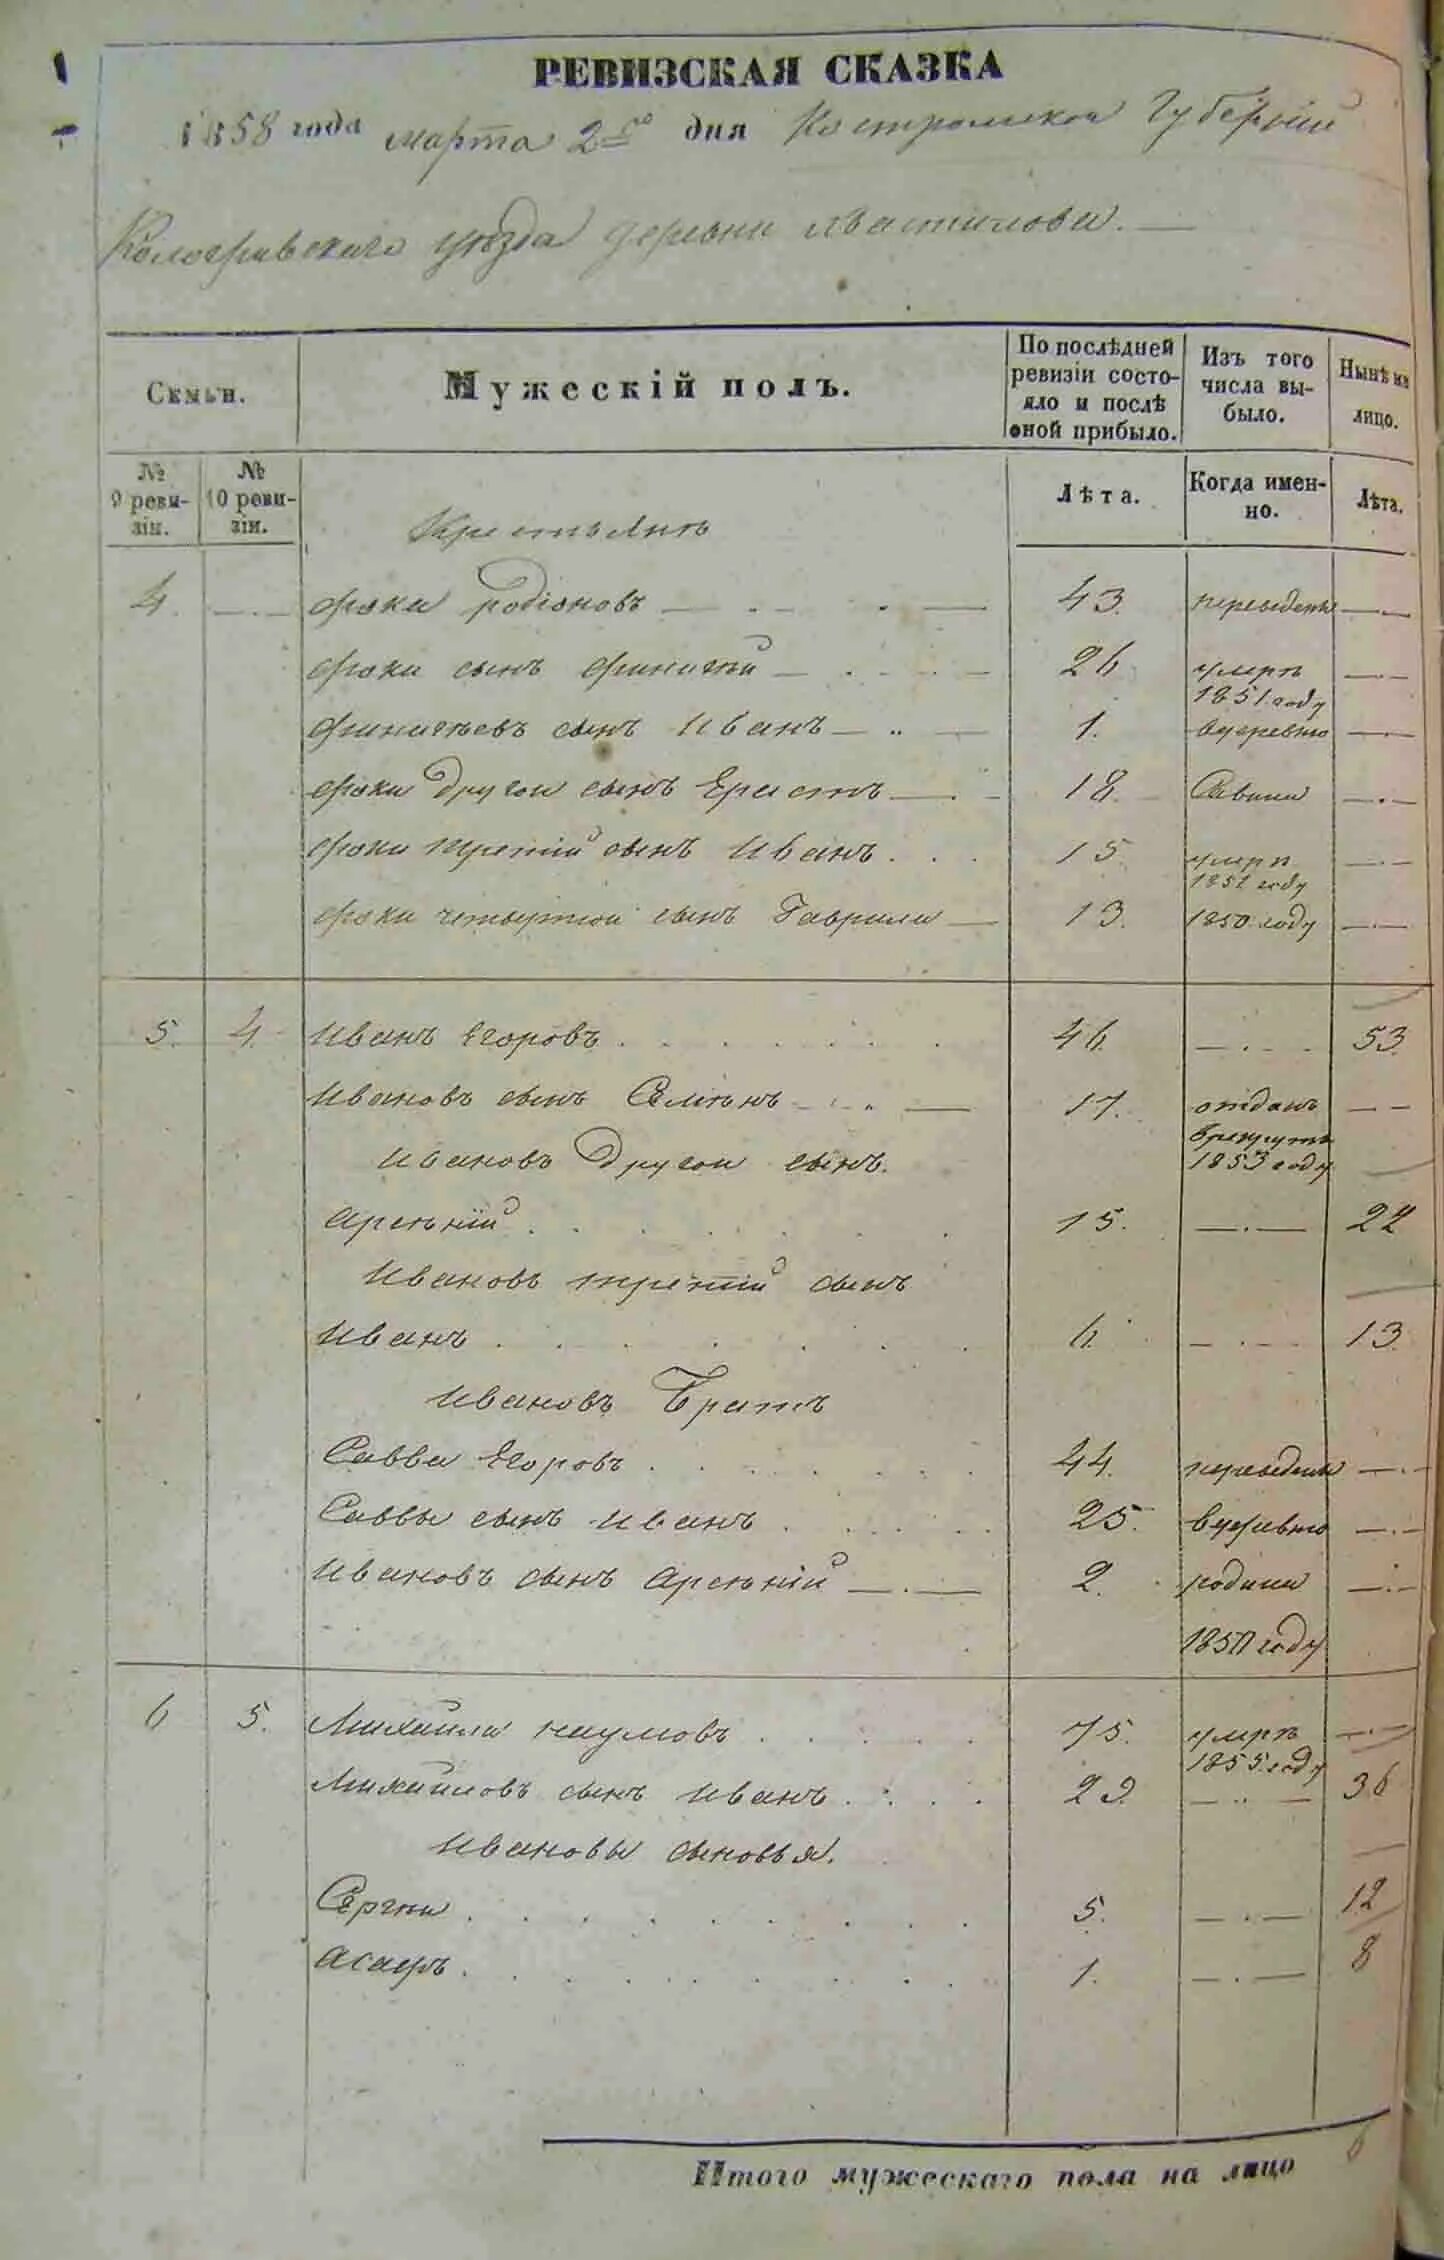 РЕВИЗСКАЯ СКАЗКА
1858 года марта 2го дня Костромской Губернии
Кологривскаго уезда деревни
Семьи. Мужескій полъ. По послѣдней ревизіи состояло и послѣ оной прибыло. Изъ того числа выбыло. Нынѣ на лицо.
№ 9 ревизіи. № 10 ревизіи. Лѣта. Когда именно. Лѣта.
Крестьянъ
4. Фоки родіоновъ 43. переведены
Фоки сынъ 26 умеръ 1851 году
сынъ Иванъ 1. в деревню
Фоки другой сынъ Ерастъ 18. Савина
Фоки третій сынъ Иванъ 15 умеръ 1851 году
Фоки четвертой сынъ Гаврила 13. 1850 году
5. 4. Иванъ Егоровъ 46. 53.
Ивановъ сынъ Семенъ 17. отданъ в рекруты 1853 году
Ивановъ другой сынъ
Арсеній 15. 22
Ивановъ третій сынъ
Иванъ 6. 13.
Ивановъ братъ
Савва Егоровъ 44. переведены
Саввы сынъ Иванъ 25. в деревню
Ивановъ сынъ Арсеній 2. родина
1850 году
6 5. Михаила наумовъ 75. умеръ 1855 году
Михайловъ сынъ Иванъ 29. 36
Ивановы сыновья.
Сергей 5. 12
Асафъ 1. 8
Итого мужескаго пола на лицо 6